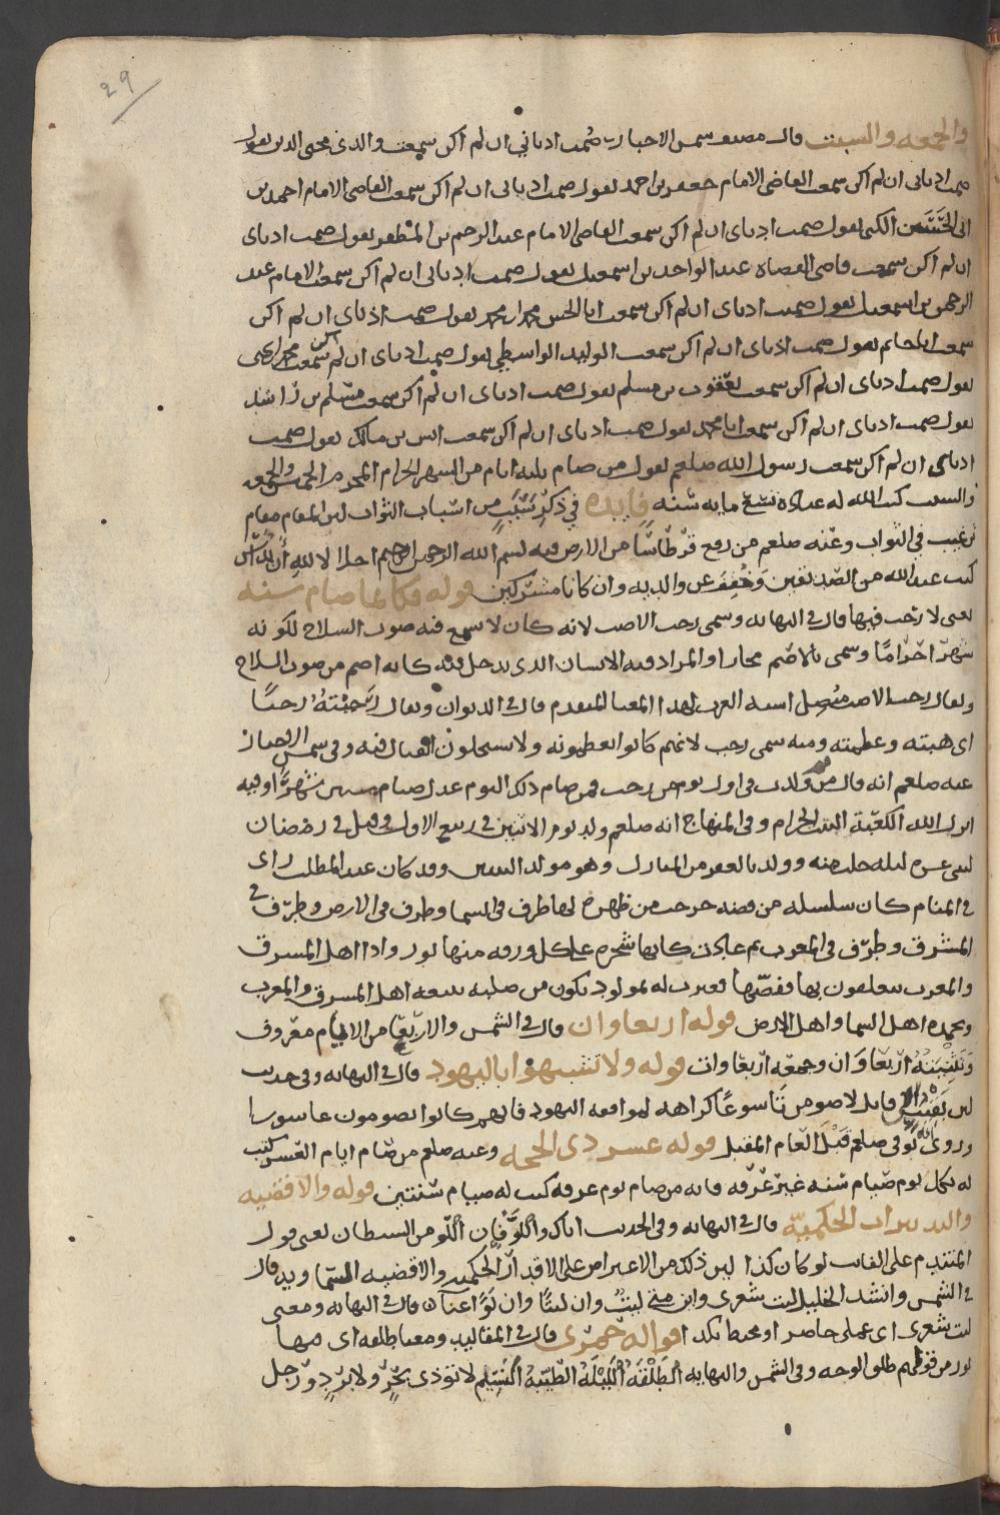 29
والجمعه والسبت قال مصنف شمس الاخبار صُمت اذناي ان لم اكن سمعت والدي محيى الدين يقول
صمت اذناي ان لم اكن سمعت القاضي الامام جعفر بن احمد يقول صمت اذناي ان لم اكن سمعت القاضي الامام احمد بن
ابي الحسن الكني يقول صمت اذناي ان لم اكن سمعت القاضي الامام عبد الرحيم بن المظفر يقول صمت اذناي
ان لم اكن سمعت قاضي القضاة عبد الواحد بن اسمعيل يقول صمت اذناي ان لم اكن سمعت الامام عبد
الرحمن بن اسمعيل يقول صمت اذناي ان لم اكن سمعت ابا الحسن محمد ابن محمد يقول صمت اذناي ان لم اكن
سمعت ابا حاتم يقول صمت اذناي ان لم اكن سمعت الوليد الواسطي يقول صمت اذناي ان لم اكن سمعت محمد بن يحيى
يقول صمت اذناي ان لم اكن سمعت يعقوب بن مسلم يقول صمت اذناي ان لم اكن سمعت مسلم بن راشد
يقول صمت اذناي ان لم اكن سمعت ابا محمد يقول صمت اذناي ان لم اكن سمعت انس بن مالك يقول صمت
اذناي ان لم اكن سمعت رسول الله صلعم يقول من صام ثلثه ايام من الشهر الحرام المحرم الخميس والجمعه
والسبت كتب الله له عبادة تسع مايه سَنه فايده في ذكر سَبَبٍ من اسباب الثواب لان المقام مقام
ترغيب في الثواب وعنه صلعم من رفع قرطاسًا من الارض فيه بسم الله الرحمن الرحيم اجلالا لله ان يداس
كتب عند الله من الصديقين وَخُفِفَ عن والديه وان كانا مشركين قوله فكانما صام سنه
يعني لا رجب فيها قال في النهايه وسمى رجب الاصب لانه كان لا يسمع فيه صوت السلاح لكونه
شهرًا حرامًا وسمى بالاصم مجازا والمراد فيه الانسان الذي يدخل فيه كانه اصم من صوت السلاح
ويقال رجب الاصب اسنه العرب لهذا المعنا المتقدم قال في الديوان ويقال رَجَبْتهُ رجبًا
اي هبته وعظمته ومنه سمى رجب لانهم كانوا يعظمونه ولا يستحلون القتال فيه وفي شمس الاخبار
عنه صلعم انه قال في اول يوم من رجب فمن صام ذلك اليوم عدل صيام ستين شهرًا وفيه
انزل الله الكعبة البيت الحرام وفي المنهاج انه صلعم ولد يوم الاثنين في ربيع الاول وقيل في رمضان
لثنتي عشره ليله خلت منه وهو مولد النبيين وقد كان عبد المطلب راى
في المنام كان سلسله من فضه خرجت من ظهره لها طرف في السما وطرف في الارض وطرف في
المشرق وطرف في المغرب ثم عادت كانها شجره على كل ورقه منها نور واذا اهل المشرق
والمغرب يتعلقون بها فقصّها فعبرت له بمولود يكون من صلبه يتبعه اهل المشرق والمغرب
ويحمده اهل السما واهل الارض قوله اربعاوان قال في الشمس والاربعا من الايام معروف
وتثنيته اربعاوان وجمعه اربعاوات قوله ولا تشبهوا باليهود قال في النهايه وفي حديث
لئن بقيت الى قابل لاصومن تاسوعًا كراهه لموافقه اليهود فانهم كانوا يصومون عاشورا
وروي انه توفى صلعم قَبْلَ العام المقبل قوله عشر ذي الحجه وعنه صلعم من صام ايام العشر كتب
له بكل يوم صيام سنه غير عرفه فانه من صام يوم عرفه كتب له صيام سَنتين قوله والاقضيه
والتدبيرات الحكميّه قال في النهايه وفي الحديث اياك واللَّوَّ فإن اللّو من الشيطان يعني قول
المتندم على الفائت لو كان كذا لان ذلك من الاعتراض على الاقدار الحكميه والاقضيه السما ويه قال
في الشمس وانشد الخليل ليت شعري واين مني ليتٌ وان ليتًا وان لوًا عنآ قال في النهايه ومعنى
ليت شعري اي علمي حاضر او محيط بكذا قوله قال في المقاليد ومعنا طلقه اي فيها
نور من قولهم طلق الوجه وفي الشمس والنهايه الطلقَه اللَيْلَة الطيّبة النَسِيم لا تؤذي بَحَرٍّ ولا بَردٍ ورَجل